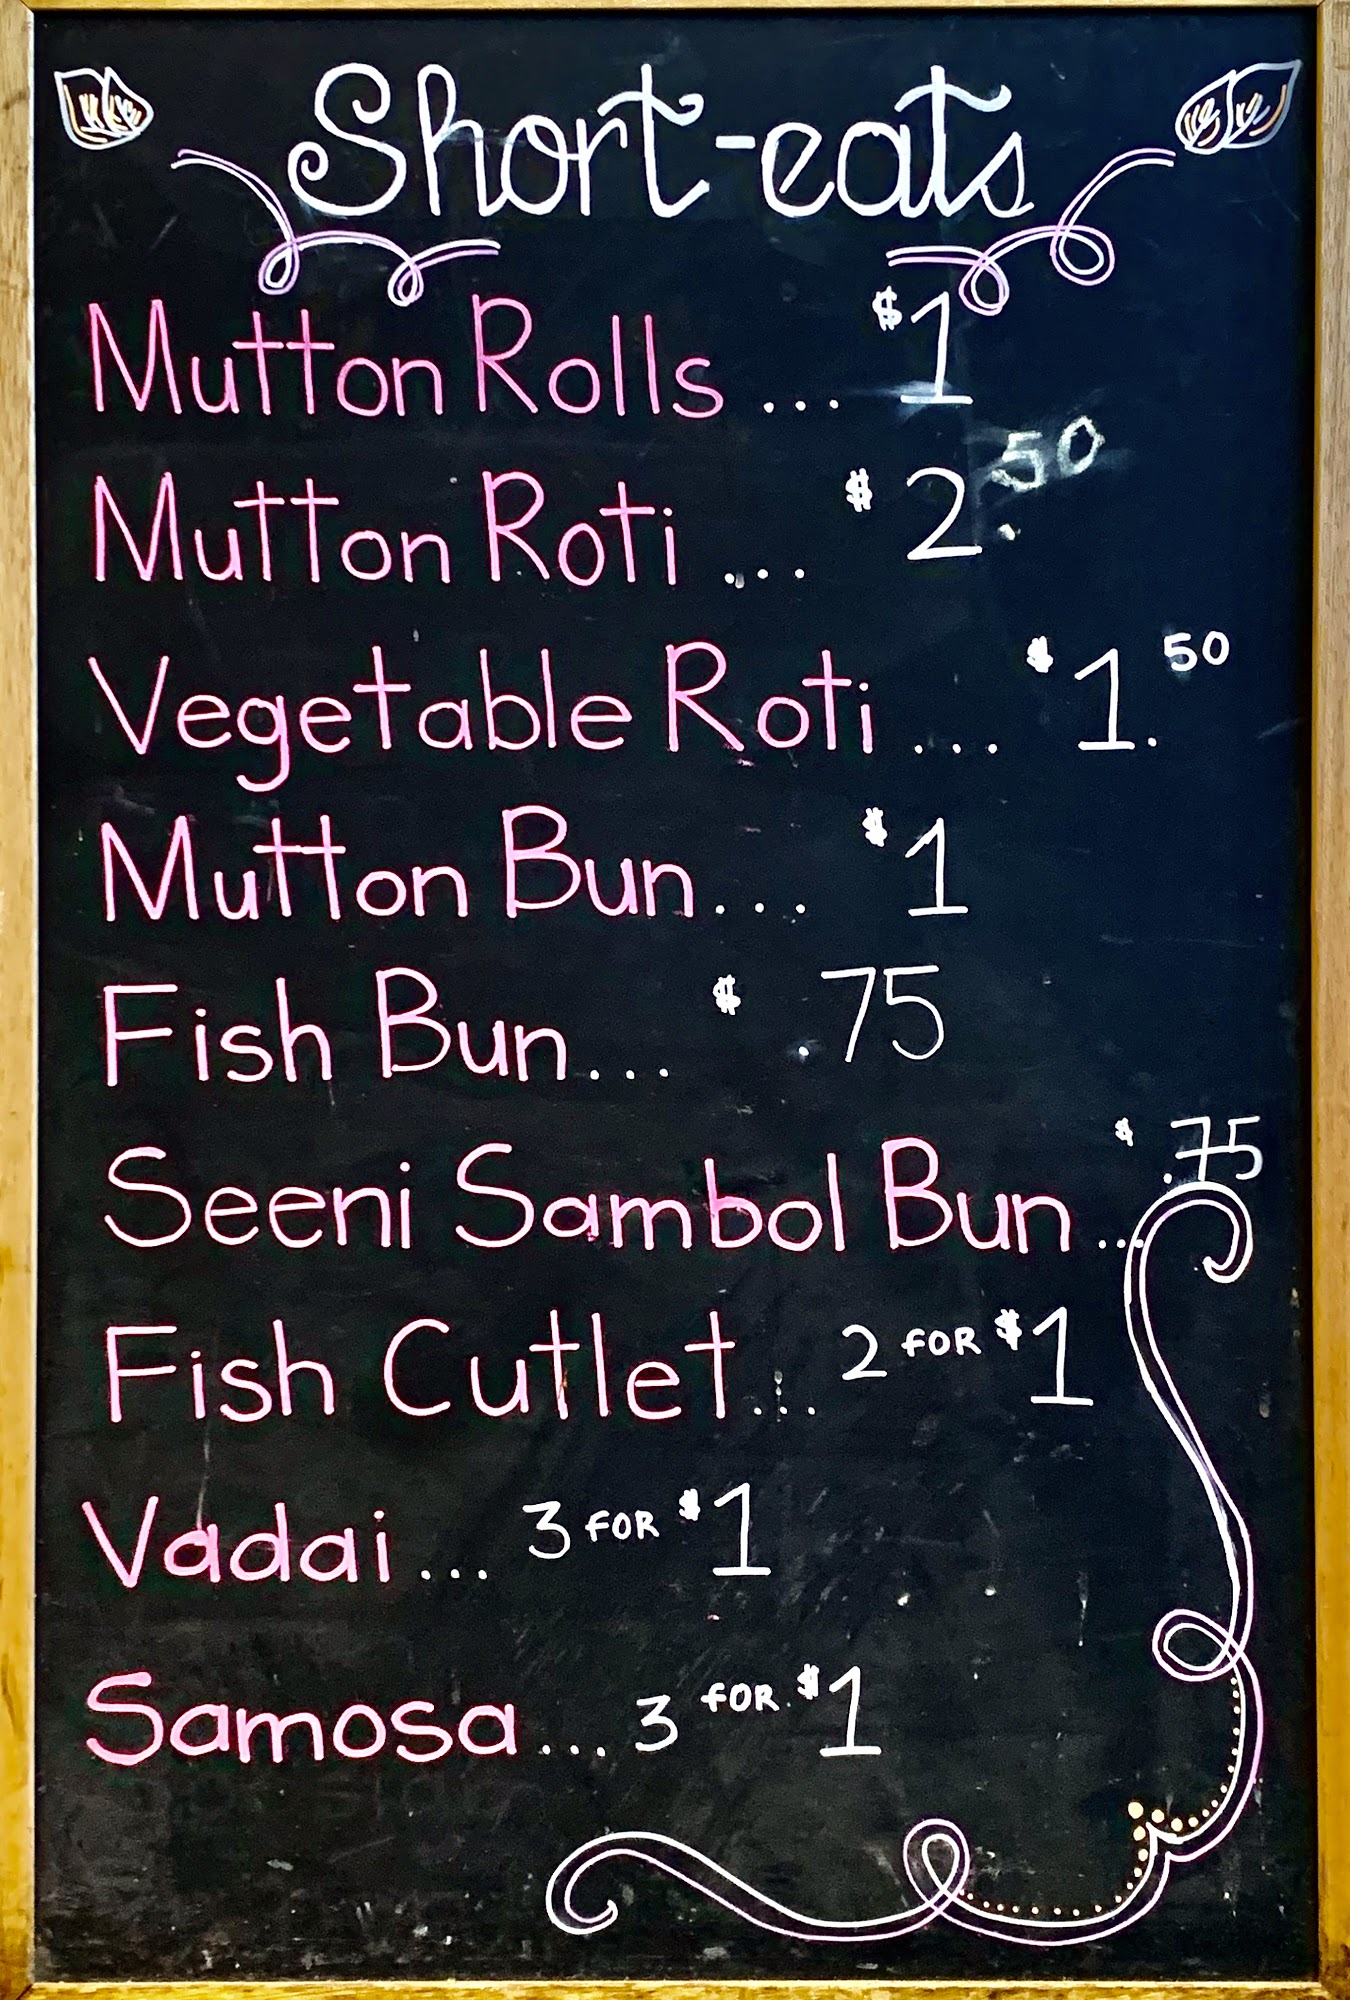 Short-eats
Mutton Rolls ... $1
Mutton Roti ... $2.50
Vegetable Roti .... $1.50
Mutton Bun... $1
Fish Bun... $.75
Seeni Sambol Bun... $.75
Fish Cutlet... 2 FOR $1
Vadai ... 3 FOR $1
Samosa ... 3 FOR $1